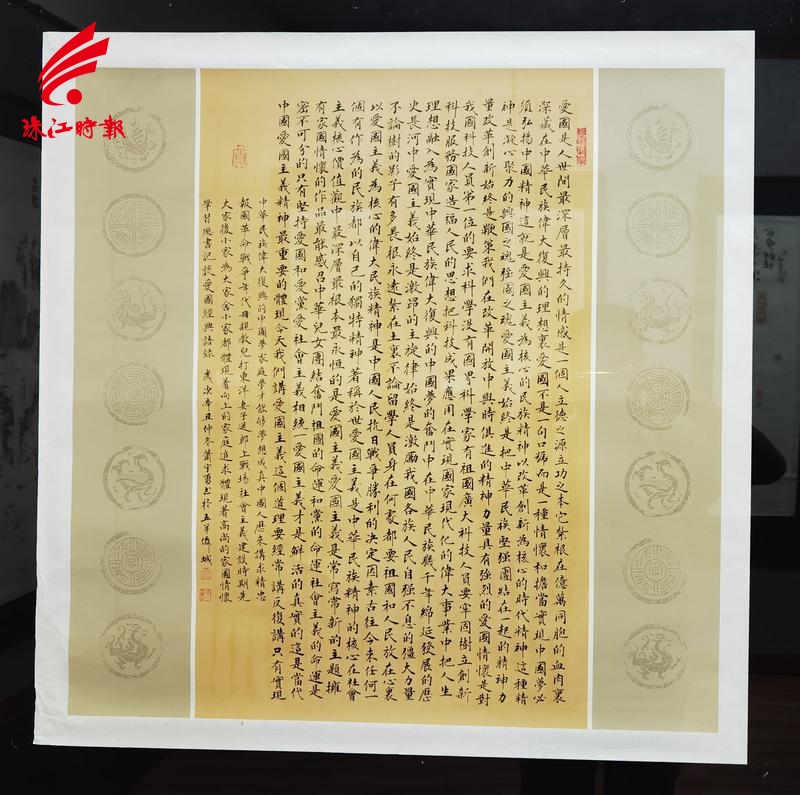 珠江時報
愛國是人世間最深層最持久的情感是一個人立德之源立功之本它紮根在億萬同胞的血肉裏
深藏在中華民族偉大復興的理想裏愛國不是一句口號而是一種情懷和擔當實現中國夢必
須弘揚中國精神這就是愛國主義為核心的民族精神以改革創新為核心的時代精神這種精
神是凝心聚力的興國之魂强國之魂愛國主義始終是把中華民族堅强團結在一起的精神力
量改革創新始終是鞭策我們在改革開放中與時俱進的精神力量具有强烈的愛國情懷是對
我國科技人員第一位的要求科學沒有國界科學家有祖國廣大科技人員要牢固樹立創新
科技服務國家造福人民的思想把科技成果應用在實現國家現代化的偉大事業中把人生
理想融入為實現中華民族偉大復興的中國夢的奮鬥中在中華民族幾千年綿延發展的歷
史長河中愛國主義始終是激昂的主旋律始終是激勵我國各族人民自强不息的强大力量
不論樹的影子有多長根永遠紮在土裏不論留學人員身在何處都要祖國和人民放在心裏
以愛國主義為核心的偉大民族精神是中國人民抗日戰爭勝利的決定因素古往今來任何一
個有作為的民族都以自己的獨特精神著稱於世愛國主義是中華民族精神的核心在社會
主義核心價值觀中最深層最根本最永恒的是愛國主義愛國主義是常寫常新的主題擁
有家國情懷的作品最能感召中華兒女團結奮鬥祖國的命運和黨的命運社會主義的命運是
密不可分的只有堅持愛國和愛黨愛社會主義相統一愛國主義才是鮮活的真實的這是當代
中國愛國主義精神最重要的體現今天我們講愛國主義這個道理要經常講反復講只有實現
中華民族偉大復興的中國夢家庭夢才能够夢想成真中國人歷來講求精忠
報國革命戰爭年代母親教兒打東洋妻子送郎上戰場社會主義建設時期先
大家後小家為大家舍小家都體現著向上的家庭追求體現著高尚的家國情懷
學習總書記談愛國經典語錄 歲次辛丑仲冬蕭宇勇書於五羊城